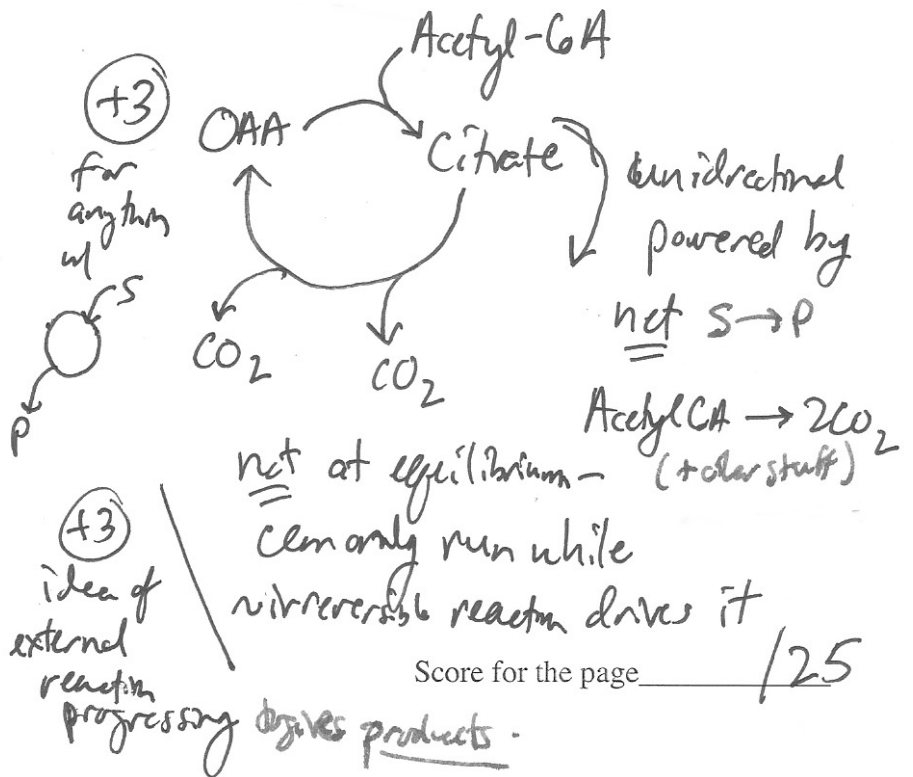 Acetyl-CoA
+3
OAA
Citrate
for
anythin
w/
S
P
unidrectional
powered by
net S→P
CO2
CO2
Acetyl CA → 2CO2
(+ other stuff)
not at equilibrium –
can only run while
irreversible reaction drives it
+3
idea of
external
reaction
progressing drives products.
Score for the page________/25